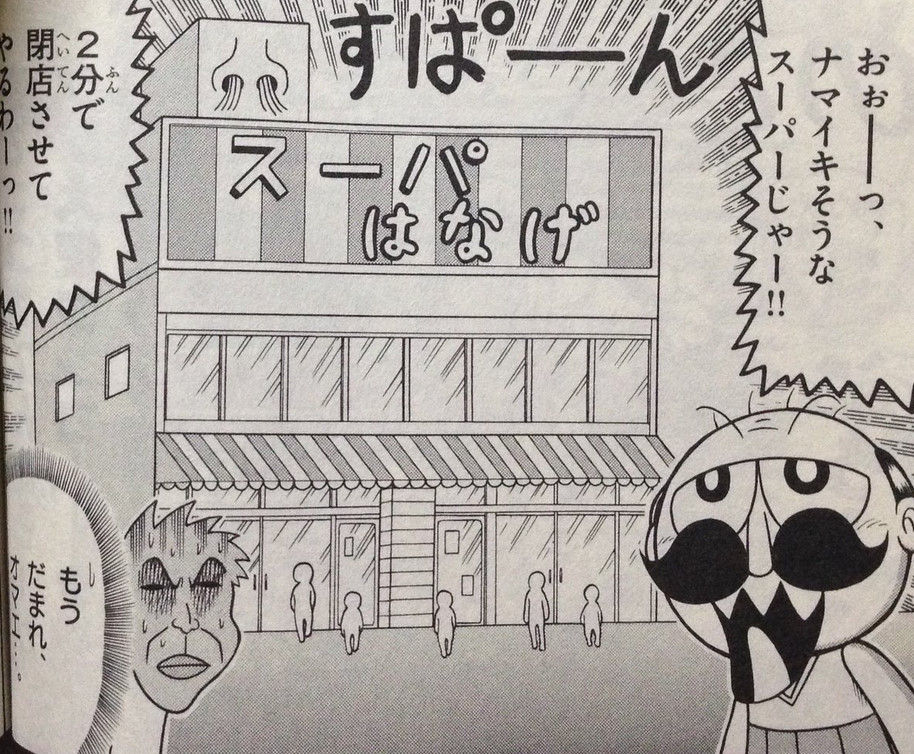 おぉーっ、
ナマイキそうな
スーパーじゃー!!
すぱーん
スーパー
はなげ
2分で
閉店させて
やるわーっ!!
もう
だまれ、
オマエ……。